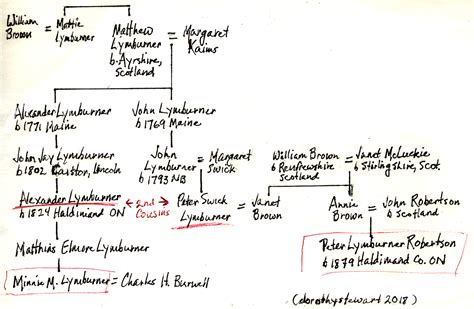 William Brown = Mattie Lymburner
Matthew Lymburner b. Ayrshire, Scotland = Margaret Kaims
Alexander Lymburner b 1771 Maine
John Lymburner b 1769 Maine
John Jay Lymburner b 1802 Caistor, Lincoln
John Lymburner b 1793 NB = Margaret Swick
William Brown b Renfrewshire Scotland = Janet McLuckie b Stirlingshire, Scot.
Alexander Lymburner b 1824 Haldimand ON
2nd Cousins
Peter Swick Lymburner = Janet Brown
Annie Brown = John Robertson b Scotland
Matthias Elmore Lymburner
Peter Lymburner Robertson b 1879 Haldimand Co. ON
Minnie M. Lymburner = Charles H. Burwell
(dorothystewart 2018)